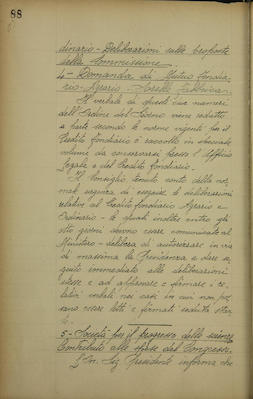 88
dinario - Deliberazioni sulle proposte
della Commissione.
4 - Domanda di Mutuo Fondia-
rio - Agrario -
Il verbale di questi due numeri
dell'Ordine del Giorno viene redatto
a parte secondo le norme vigenti pel
Credito Fondiario e raccolto in separato
volume da conservarsi presso l'Ufficio
Legale e del Credito Fondiario.
Il Consiglio, tenuto conto della nor-
male urgenza di eseguire le deliberazioni
relative al Credito Fondiario Agrario e
Ordinario - le quali inoltre entro gli
otto giorni devono essere comunicate al
Ministero - delibera di autorizzare in via
di massima la Presidenza a dare se-
guito immediato alle deliberazioni
stesse e ad approvare e firmare i re-
lativi verbali nei casi in cui non pos-
sano essere letti e firmati seduta stan-
te.
5 - Società pel progresso delle scienze
Contributo alle spese del Congresso.
Il Sig. Presidente informa che